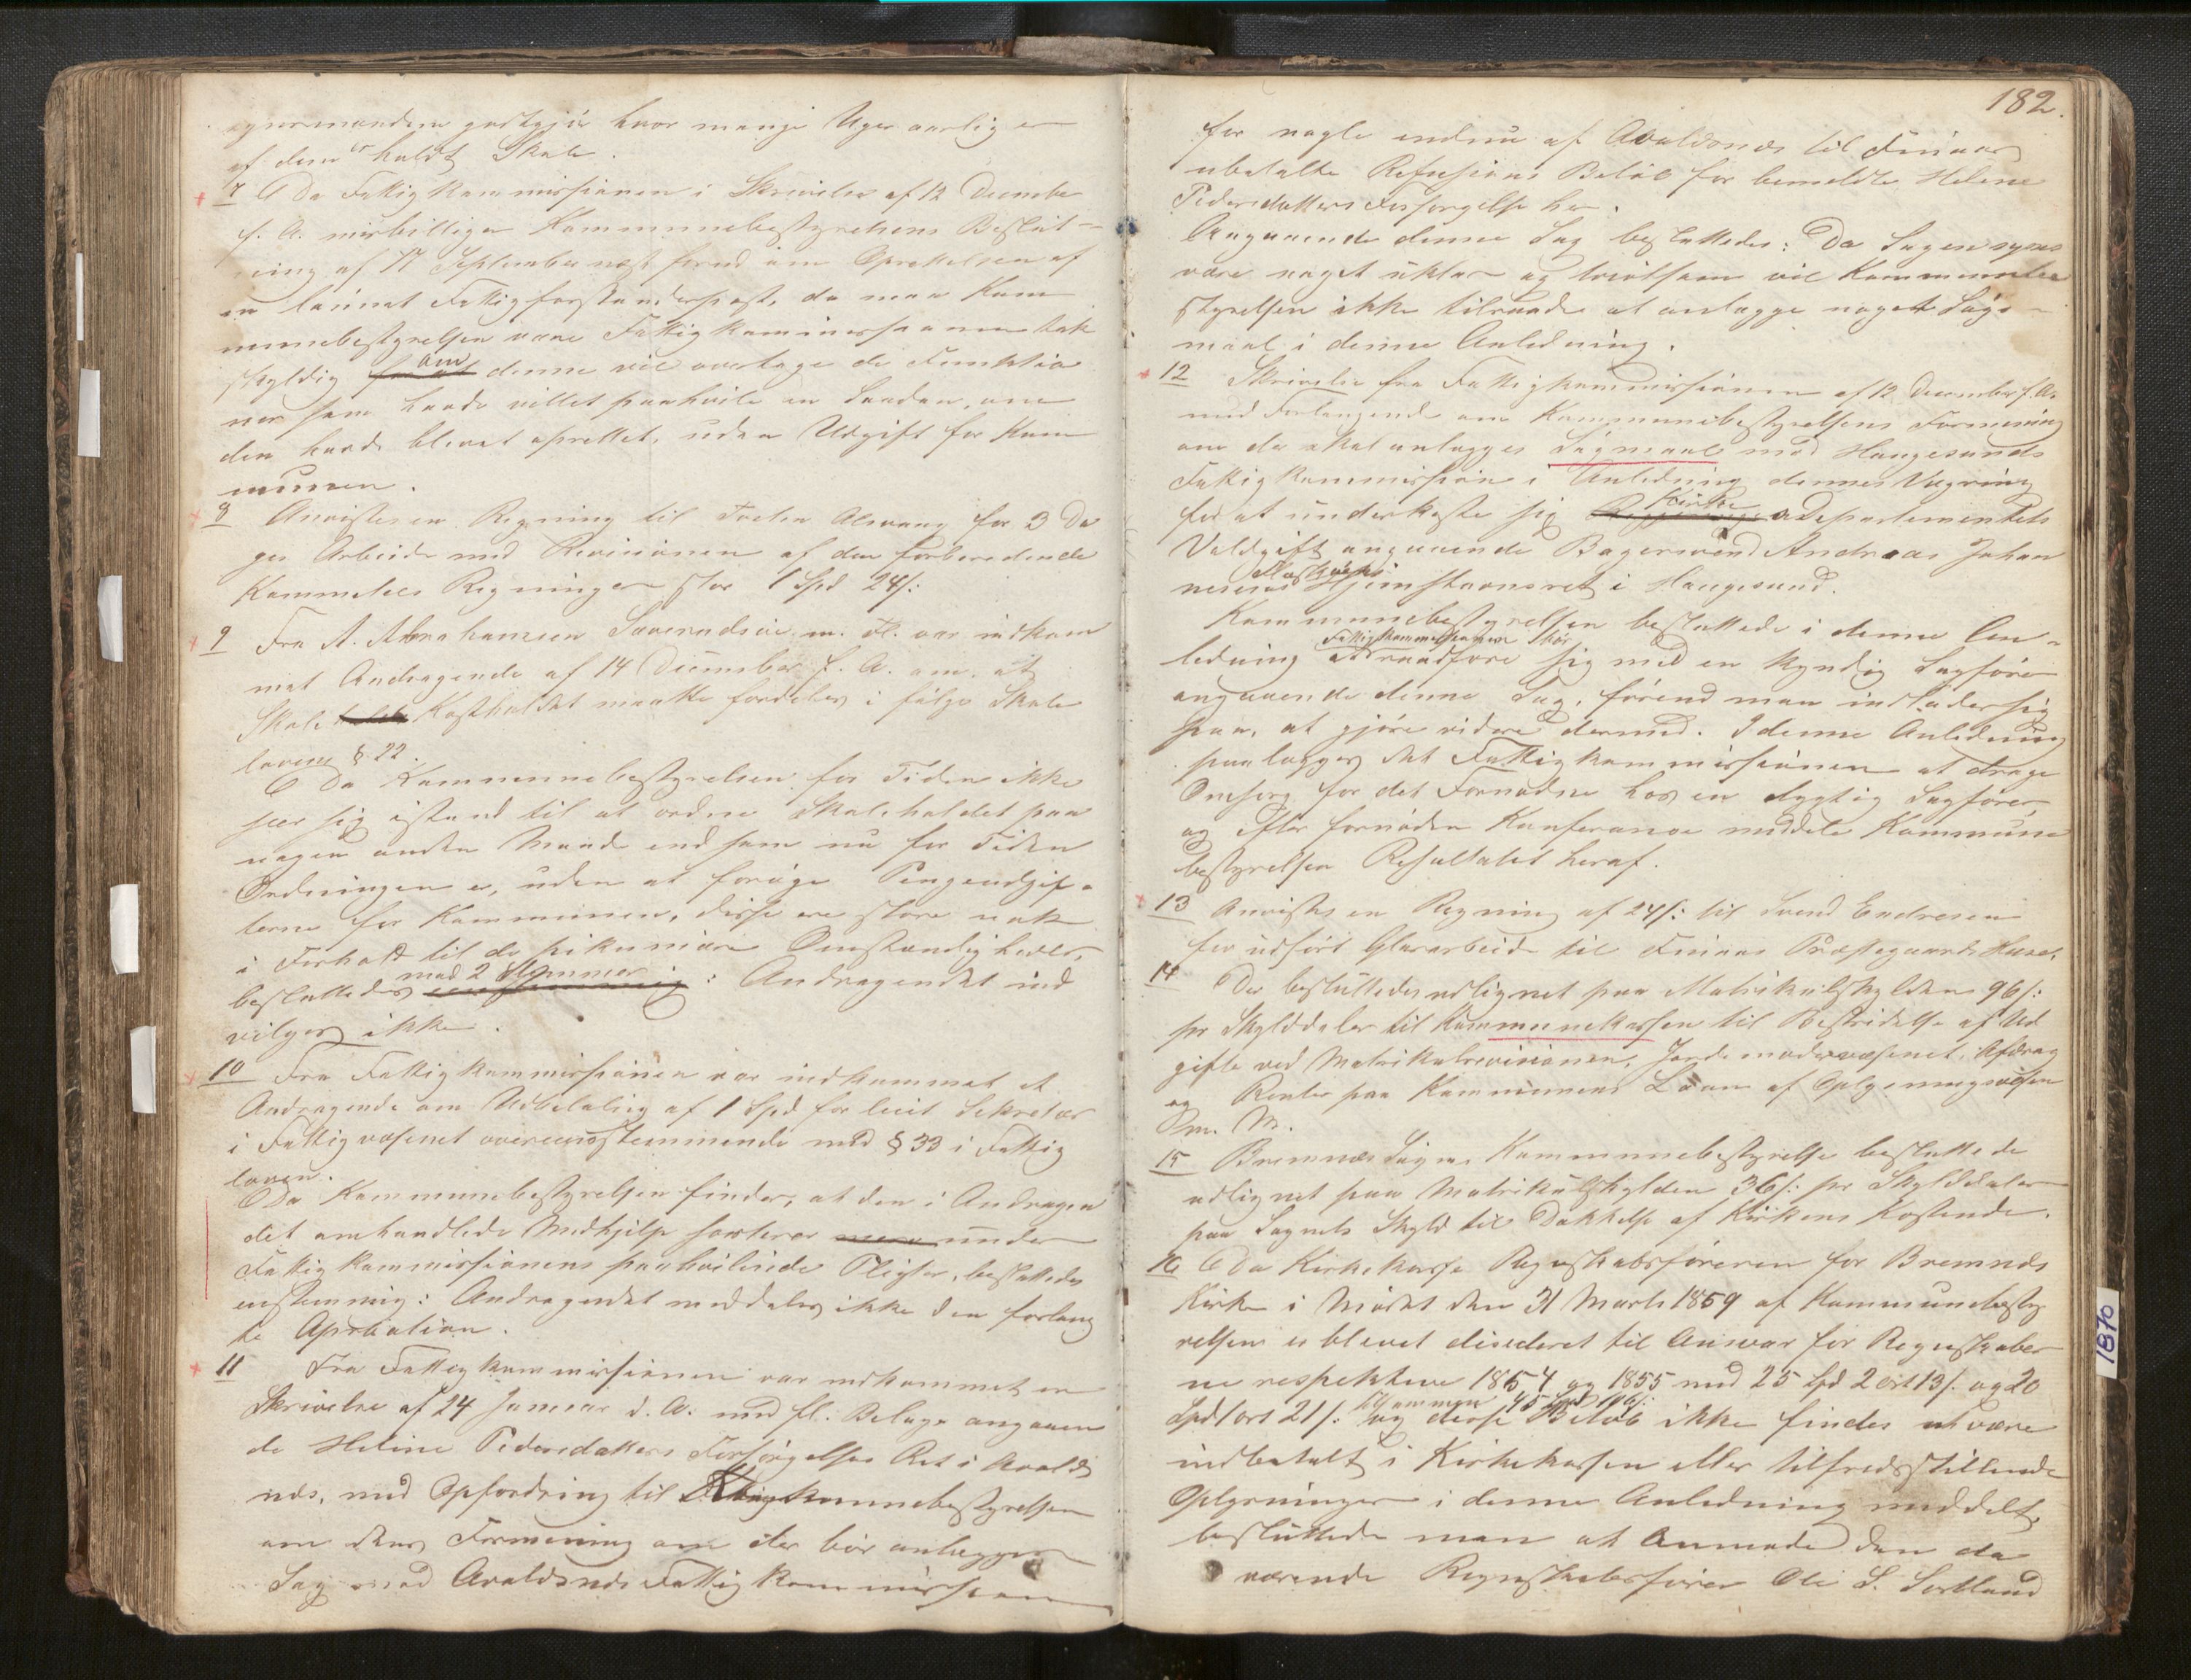 ognemændene godtgjør hvor mange Uger aarlig er
af dem er holdt Skole.
7 Da Fattigkommissionen i Skrivelse af 12 December
f. A. misbilliger Kommunebestyrelsens Beslut-
ning af 17 September næst forud om Oprettelsen af
en lønnet Fattigforstanderpost, da maa Kom
munebestyrelsen være Fattigkommissionen tak
skyldig om denne vil overtage de Funktio
ner som havde villet paahvile en Saadan, om
den havde blevet oprettet, uden Udgift for Kom
munen.
8 Anvistes en Regning til Alsvaag for 3 Da
ges Arbeide med Revisionen af den forberedende
Kommitees Regninger stor 1 Spd 24/:
9 Fra A. Abrahamsen m. Fl. var indkom
met Andragende af 14 December f. A. om, at
Skole Kostholdet maatte fordeles i følge Skole
lovens § 22.
Da Kommunebestyrelsen for Tiden ikke
seer sig istand til at ordne Skoleholdet paa
nogen anden Maade end som nu for Tiden
Ordningen er, uden at forøge Pengeudgif-
terne for Kommunen, disse ere store nok
i Forhold til de pikuniære Omstændigheder,
besluttedes med 2 Stemmer enstemmig: Andragendet ind
vilges ikke.
10 Fra Fattigkommissionen var indkommet et
Andragende om Udbetaling af 1 Spd for leiet Sekretær
i Fattigvæsenet overeensstemmende med § 33 i Fattig
loven.
Da Kommunebestyrelsen finder, at den i Andragen
det omhandlede Medhjelp sorterer under
Fattigkommissionens paahvilende Pligter, besluttedes
enstemmig: Andragendet meddeles ikke den forlang
te Aprobation.
11 Fra Fattigkommissionen var indkommet en
Skrivelse af 24 Januar d. A. med fl. Bilage angaaen
de Helene Pedersdatters Forsørgelses Ret i Avalds
næs, med Opfordring til Kommunebestyrelsen
om dens Formening om der bør anlægges
Sag mod Avaldsnæs Fattigkommission
182.
for nogle endnu af Avaldsnæs til Finaas
ubetalte Refusions Beløb for bemeldte Helene
Pedersdatters Forsørgelse her.
Angaaende denne Sag besluttedes: Da Sagen synes
være noget uklar og tvivlsom vil Kommunebe
styrelsen ikke tilraade at anlægge noget Søgs-
maal i denne Anledning.
12 Skrivelse fra Fattigkommissionen af 12 December f. A.
med Forlangende om Kommunebestyrelsens Formening
om der skal anlægges Søgsmaal mod Haugesunds
Fattigkommission i Anledning dennes Vægring
for at underkaste sig Kirke Departementets
Voldgift angaaende Bagersvend Andreas Johan
nesens Hjemstavnsret i Haugesund.
Kommunebestyrelsen besluttede i denne An-
ledning at Fattigkommissionen bør raadføre sig med en kyndig Sagfører
angaaende denne Sag, førend man indlader sig
paa, at gjøre videre dermed. I denne Anledning
paalægges det Fattigkommissionen at drage
Omsorg for det Fornødne hos en dygtig Sagfører,
og efter fornøden Konferance meddele Kommune
bestyrelsen Resultatet heraf.
13 Anvistes en Regning af 24/: til Svend Endresen
for udført Glasarbeide til Finaas Præstegaards Huse.
14 Der besluttedes udlignet paa Matrikulskylden 96/:
pr Skylddaler til Kommunekassen til Bestridelse af Ud
gifte ved Matrikulrevisionen, Jordemodervæsenet, Afdrag
og Renter paa Kommunens Laan af Oplysningsvæsen
m. M.
15 Bremnæs Sogns Kommunebestyrelse besluttede
udlignet paa Matrikulskylden 36/: pr Skylddaler
paa Sognets Skyld til Dækkelse af Kirkens Kostende.
16 Da Kirkekasse Regnskabsføreren for Bremnæs
Kirke i Mødet den 31 Marts 1859 af Kommunebesty
relsen er blevet decideret til Ansvar for Regnskaber
ne respektive 1854 og 1855 med 25 Spd 2 ort 13/. og 20
Spd 1 ort 21/: tilsammen 45 Spd og disse Beløb ikke findes at være
indbetalt i Kirkekassen eller tilfredsstillende
Oplysninger i denne Anledning meddelt,
besluttede man at Anmode den da
værende Regnskabsfører Ole S. Sortland
1870